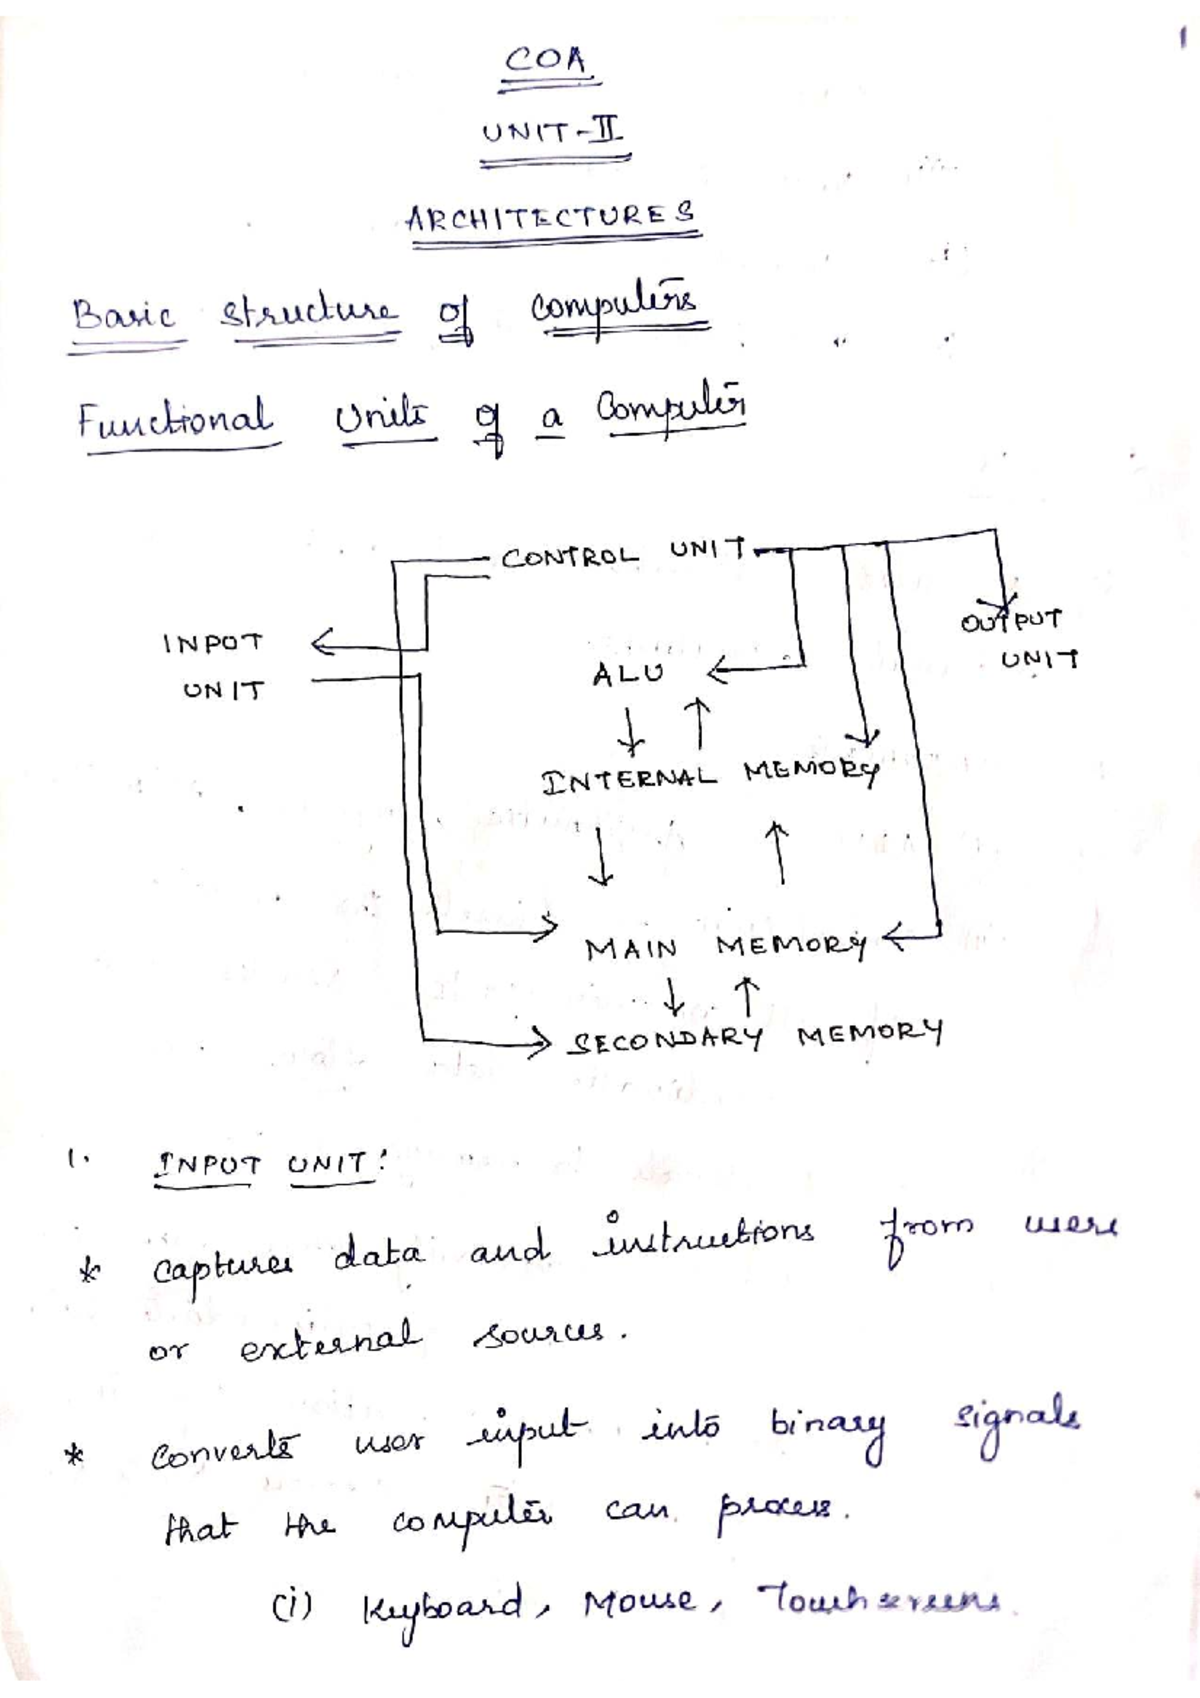 1
COA
UNIT-II
ARCHITECTURES
Basic structure of computers
Functional Units of a Computer
CONTROL UNIT
INPUT
UNIT
OUTPUT
UNIT
ALU
INTERNAL MEMORY
MAIN MEMORY
SECONDARY MEMORY
1. INPUT UNIT:
* captures data and instructions from users
or external sources.
* converts user input into binary signals
that the computer can process.
(i) Keyboard, Mouse, Touchscreens.